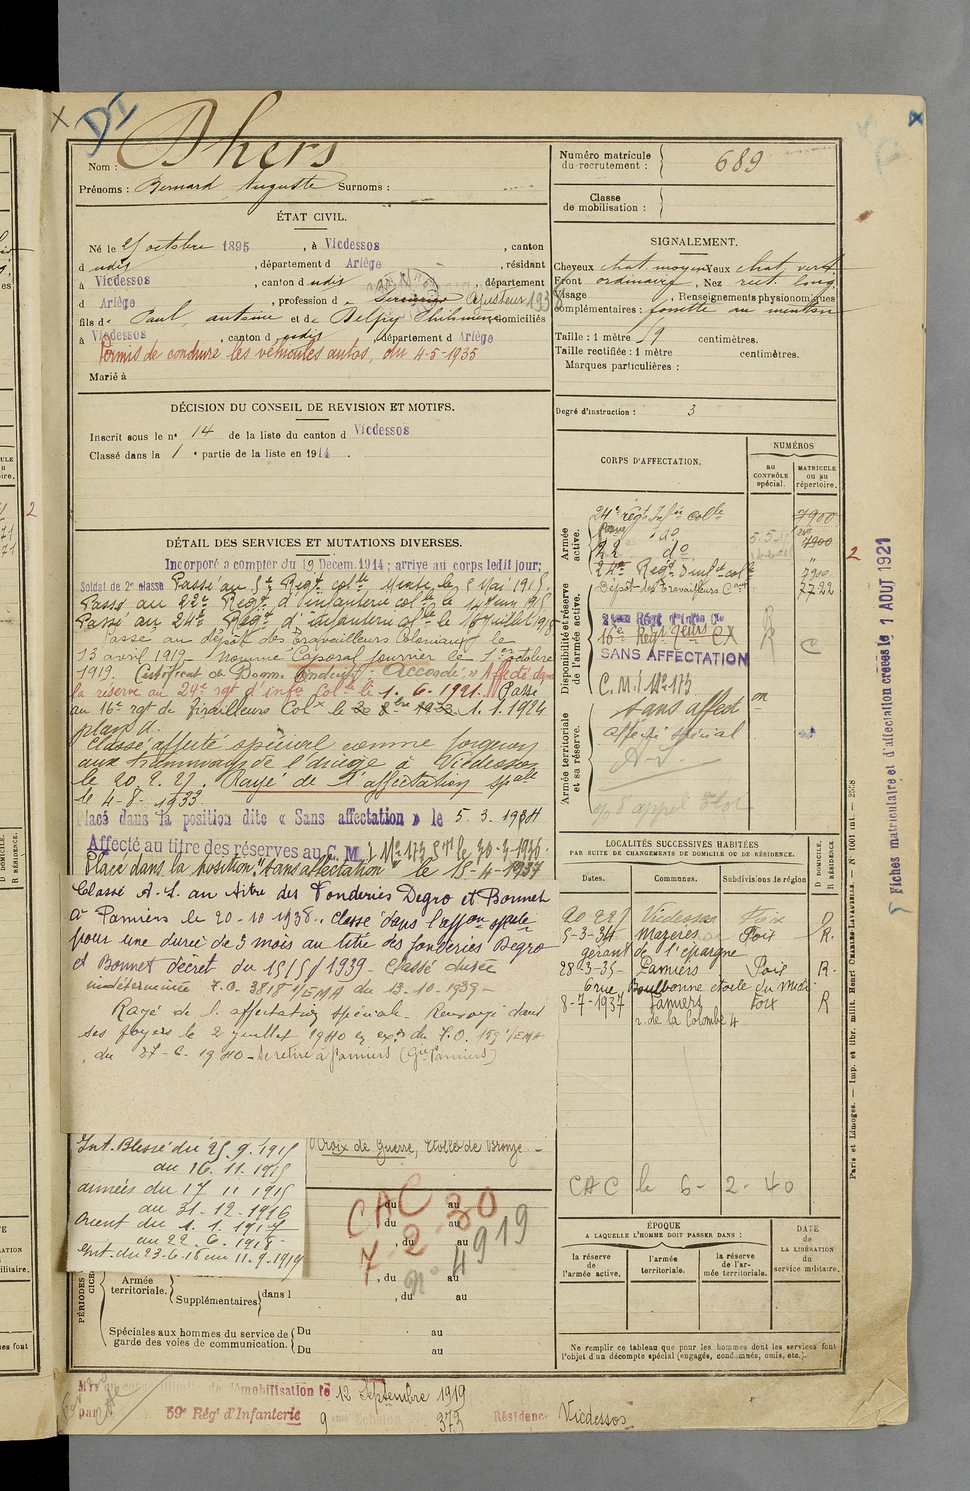 DI
Nom : Dhers
Prénoms : Bernard Auguste Surnoms :
Numéro matricule du recrutement : 689
Classe de mobilisation :
ÉTAT CIVIL.
Né le octobre 1895, à Vicdessos, canton
d udis, département d Ariège, résidant
à Vicdessos, canton d udis, département
d Ariège, profession d Ajusteur
fils de Paul, antoine et de Delpy Philimine domiciliés
à Vicdessos, canton d udis, département d Ariège
Permis de conduire les véhicules autos, du 4-5-1935
Marié à
SIGNALEMENT.
Cheveux chat. moyen Yeux chat. vert
Front ordinaire, Nez rect. long
Visage, Renseignements physionomiques
complémentaires : fossette au menton
Taille : 1 mètre 59 centimètres.
Taille rectifiée : 1 mètre centimètres.
Marques particulières :
Degré d'instruction : 3
DÉCISION DU CONSEIL DE REVISION ET MOTIFS.
Inscrit sous le n° 14 de la liste du canton d Vicdessos
Classé dans la 1e partie de la liste en 1914.
DÉTAIL DES SERVICES ET MUTATIONS DIVERSES.
Incorporé a compter du 19 Decem. 1914 ; arrivé au corps ledit jour;
Soldat de 2e classe Passé au 5e Régt colal Mixte le 5 Mai 1915
Passé au 22e Régt d'infanterie colle le 14 Juin 1915
Passé au 24e Régt d'infanterie colle le 16 Juillet 1918
Passé au dépôt des Travailleurs Coloniaux le
13 avril 1919. Nommé Caporal fourrier le 1er octobre
1919. Certificat de Bonne Conduite "Accordé". Affecté dans
la réserve au 24e rgt d'infie Colle le 1.6.1921. Passé
au 16e rgt de Tirailleurs Colx le 1.1.1924
plan d.
Classé affecté spécial comme forgeron
aux tramways de l'ariège à Vicdessos
le 20.2.27. Rayé de l'affectation spale
le 4-8-1933.
Placé dans la position dite « Sans affectation » le 5.3.1934
Affecté au titre des réserves au C.M. I No 173 le 30-3-1936
Placé dans la position "Sans affectation" le 15-4-1937
Classé A.S. au titre des Fonderies Degro et Bonnet
à Pamiers le 20-10-1938. Classé dans l'affon spéale
pour une durée de 3 mois au titre des fonderies Degro
et Bonnet décret du 1939 - Classé durée
indéterminée F.O. 3818 1/EMA du 13-10-1939 -
Rayé de l'affectation spéciale. Renvoyé dans
ses foyers le 2 juillet 1940 en exon de F.O. 1/EMA
du 27-6-1940 - Se retire à Pamiers
CORPS D'AFFECTATION.
NUMÉROS
au CONTRÔLE spécial.
MATRICULE ou au répertoire.
Armée active.
24e régt Infie colle 7900
22 do 7900
24e Régt d'infie colle 7900
Dépôt des Travailleurs Caux 7722
Disponibilité et réserve de l'armée active.
24eme Régt d'Infie Cle
16e Régt Tleurs CX
SANS AFFECTATION
C.M.I No 173
C
Armée territoriale et sa réserve.
sans affection
affecté spécial
Fiches matriculaire et d'affectation créées le 1 AOUT 1921
2
2
LOCALITÉS SUCCESSIVES HABITÉES
PAR SUITE DE CHANGEMENTS DE DOMICILE OU DE RÉSIDENCE.
Dates. Communes. Subdivisions de région D DOMICILE. R RÉSIDENCE.
20.2.27 Vicdessos Foix D
5-3-34 Mazères Foix R.
gérant de l'épargne
28-3-35 Pamiers Foix R.
6 rue Boulbonne étoile du Midi
8-7-1937 Pamiers Foix R
r. de la Colombe 4
CAC le 6-2-40
Int. Blessé du 25.9.1915
au 16.11.1915
armées du 17 11 1915
au 31-12-1916
Orient du 1.1.1917
au 22.6.1918
Int. du 23-6-18 au 11.9.1919
Croix de Guerre, Etoile de Bronze
CAC
7-2-30
n° 4919
du au
du au
, du au
, du au
, du au
Armée territoriale. Supplémentaires dans l
Spéciales aux hommes du service de garde des voies de communication. Du au
Du au
ÉPOQUE
A LAQUELLE L'HOMME DOIT PASSER DANS :
la réserve de l'armée active.
l'armée territoriale.
la réserve de l'armée territoriale.
DATE de LA LIBÉRATION du service militaire.
Ne remplir ce tableau que pour les hommes dont les services font
l'objet d'un décompte spécial (engagés, condamnés, omis, etc.).
Paris et Limoges. — Imp. et libr. milit. Henri CHARLES-LAVAUZELLE. — N° 1001 int. — 2558
démobilisation le 12 Septembre 1919
par 59e Régt d'Infanterie 9eme Echelon 373 Résidence Vicdessos